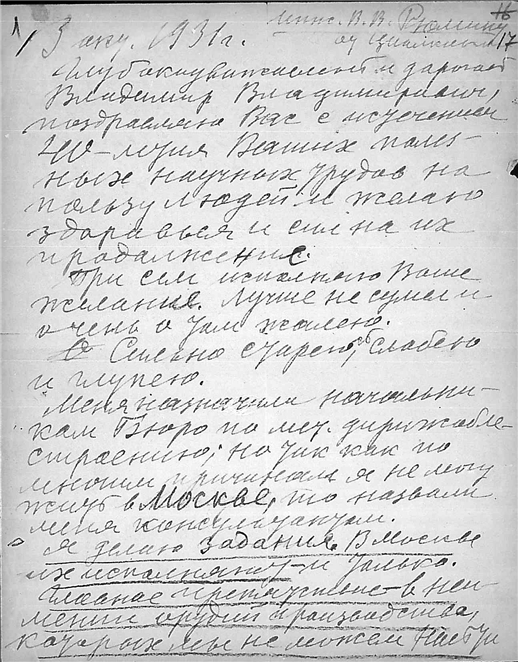 16
инж. В. В. Рюмину
1/ 3 янв. 1931 г. от Циолковский 17
Глубокоуважаемый и дорогой
Владимир Владимирович,
поздравляю Вас с истечением
40-летия Ваших полез-
ных научных трудов на
пользу людей и желаю
здоровья и сил на их
продолжение.
При сем исполняю Ваше
желание. Лучше не сумел и
очень о том жалею.
Сильно старею, слабею
и глупею.
Меня назначили начальни-
ком Бюро по мет. дирижабле-
строению; но так как по
многим причинам я не могу
жить в Москве, то назвали
меня консультантом.
Я делаю задания. В Москве
их исполняют – и только.
Главное препятствие – в неи-
мении орудий производства,
которых мы не можем